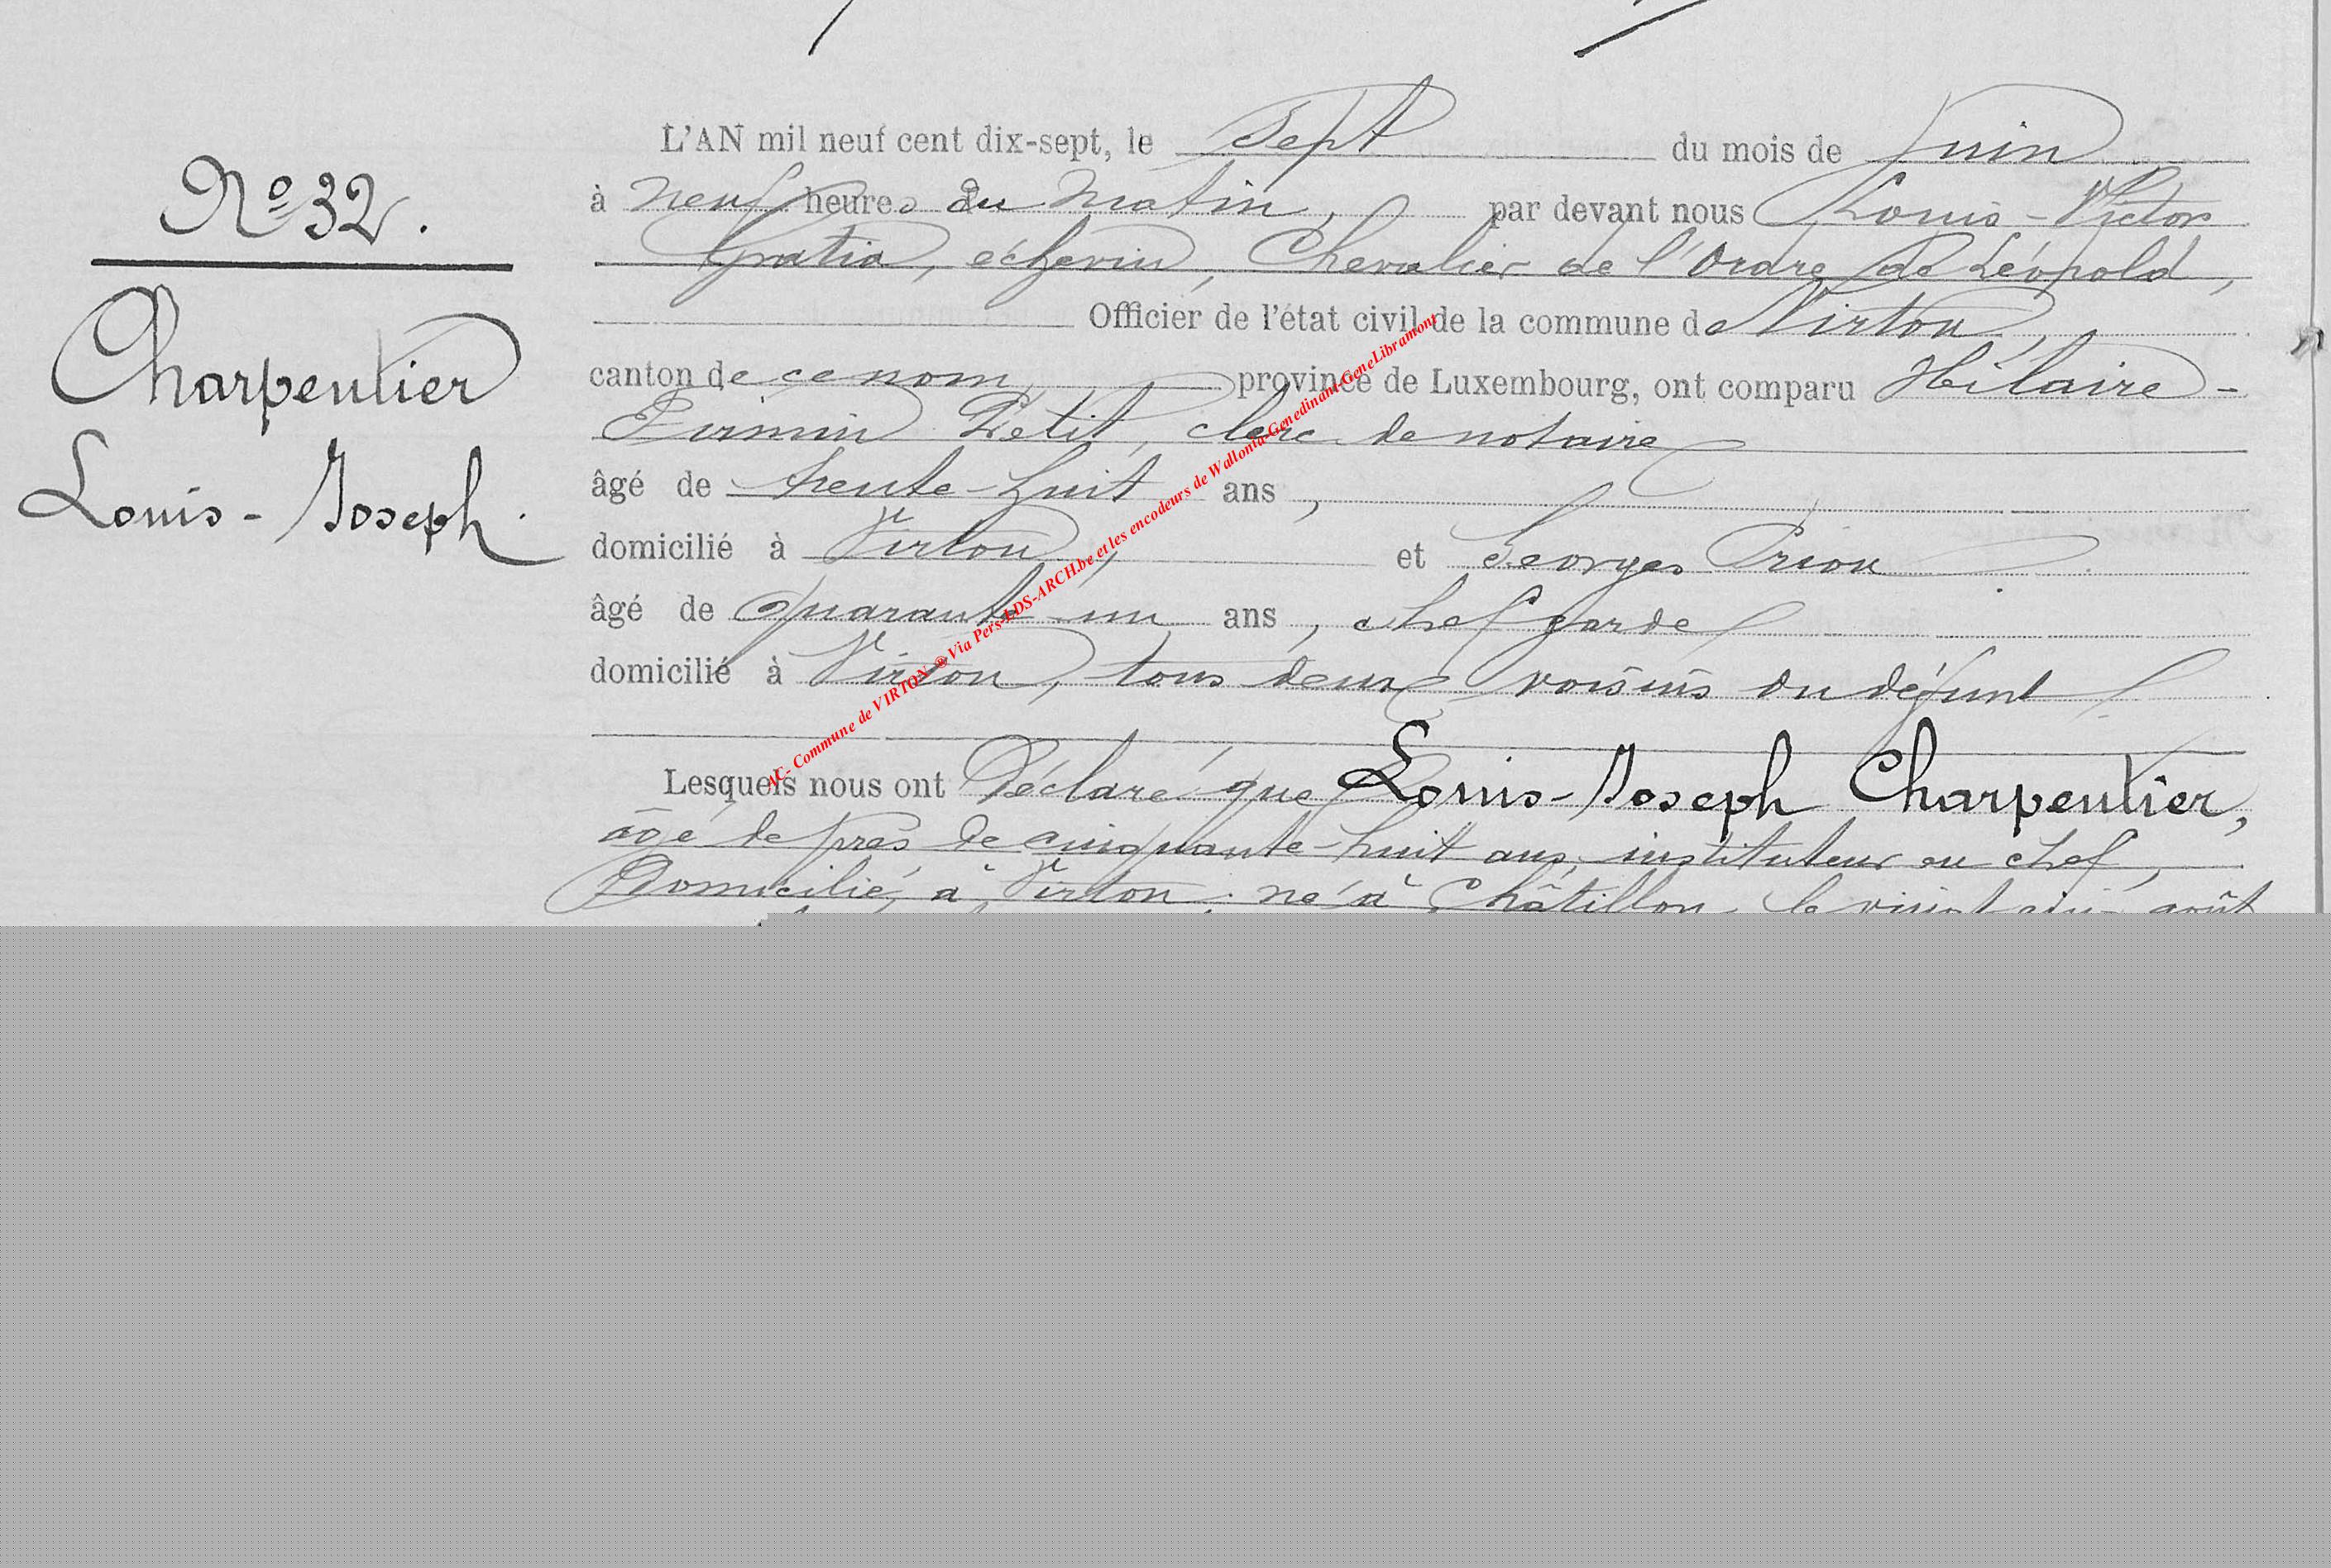 L'AN mil neuf cent dix-sept, le Sept du mois de Juin
N° 32.
à neuf heures du matin, par devant nous Louis-Victor
Gratia, échevin, Chevalier de l'Ordre de Léopold,
Officier de l'état civil de la commune de Virton,
Charpentier
canton de ce nom, province de Luxembourg, ont comparu Hilaire-
Firmin Petit, clerc de notaire
Louis-Joseph.
âgé de trente-huit ans,
domicilié à Virton, et Georges Prion
âgé de quarante-un ans, chef garde
domicilié à Virton, tous deux voisins du défunt
Lesquels nous ont Déclaré que Louis-Joseph Charpentier,
âgé de près de cinquante-huit ans, instituteur en chef,
Domicilié à Virton, né à Châtillon, le vingt août
AC- Commune de VIRTON ® Via Pers-LDS-ARCH.be et les encodeurs de Wallonia-Genedinant-GeneLibramont